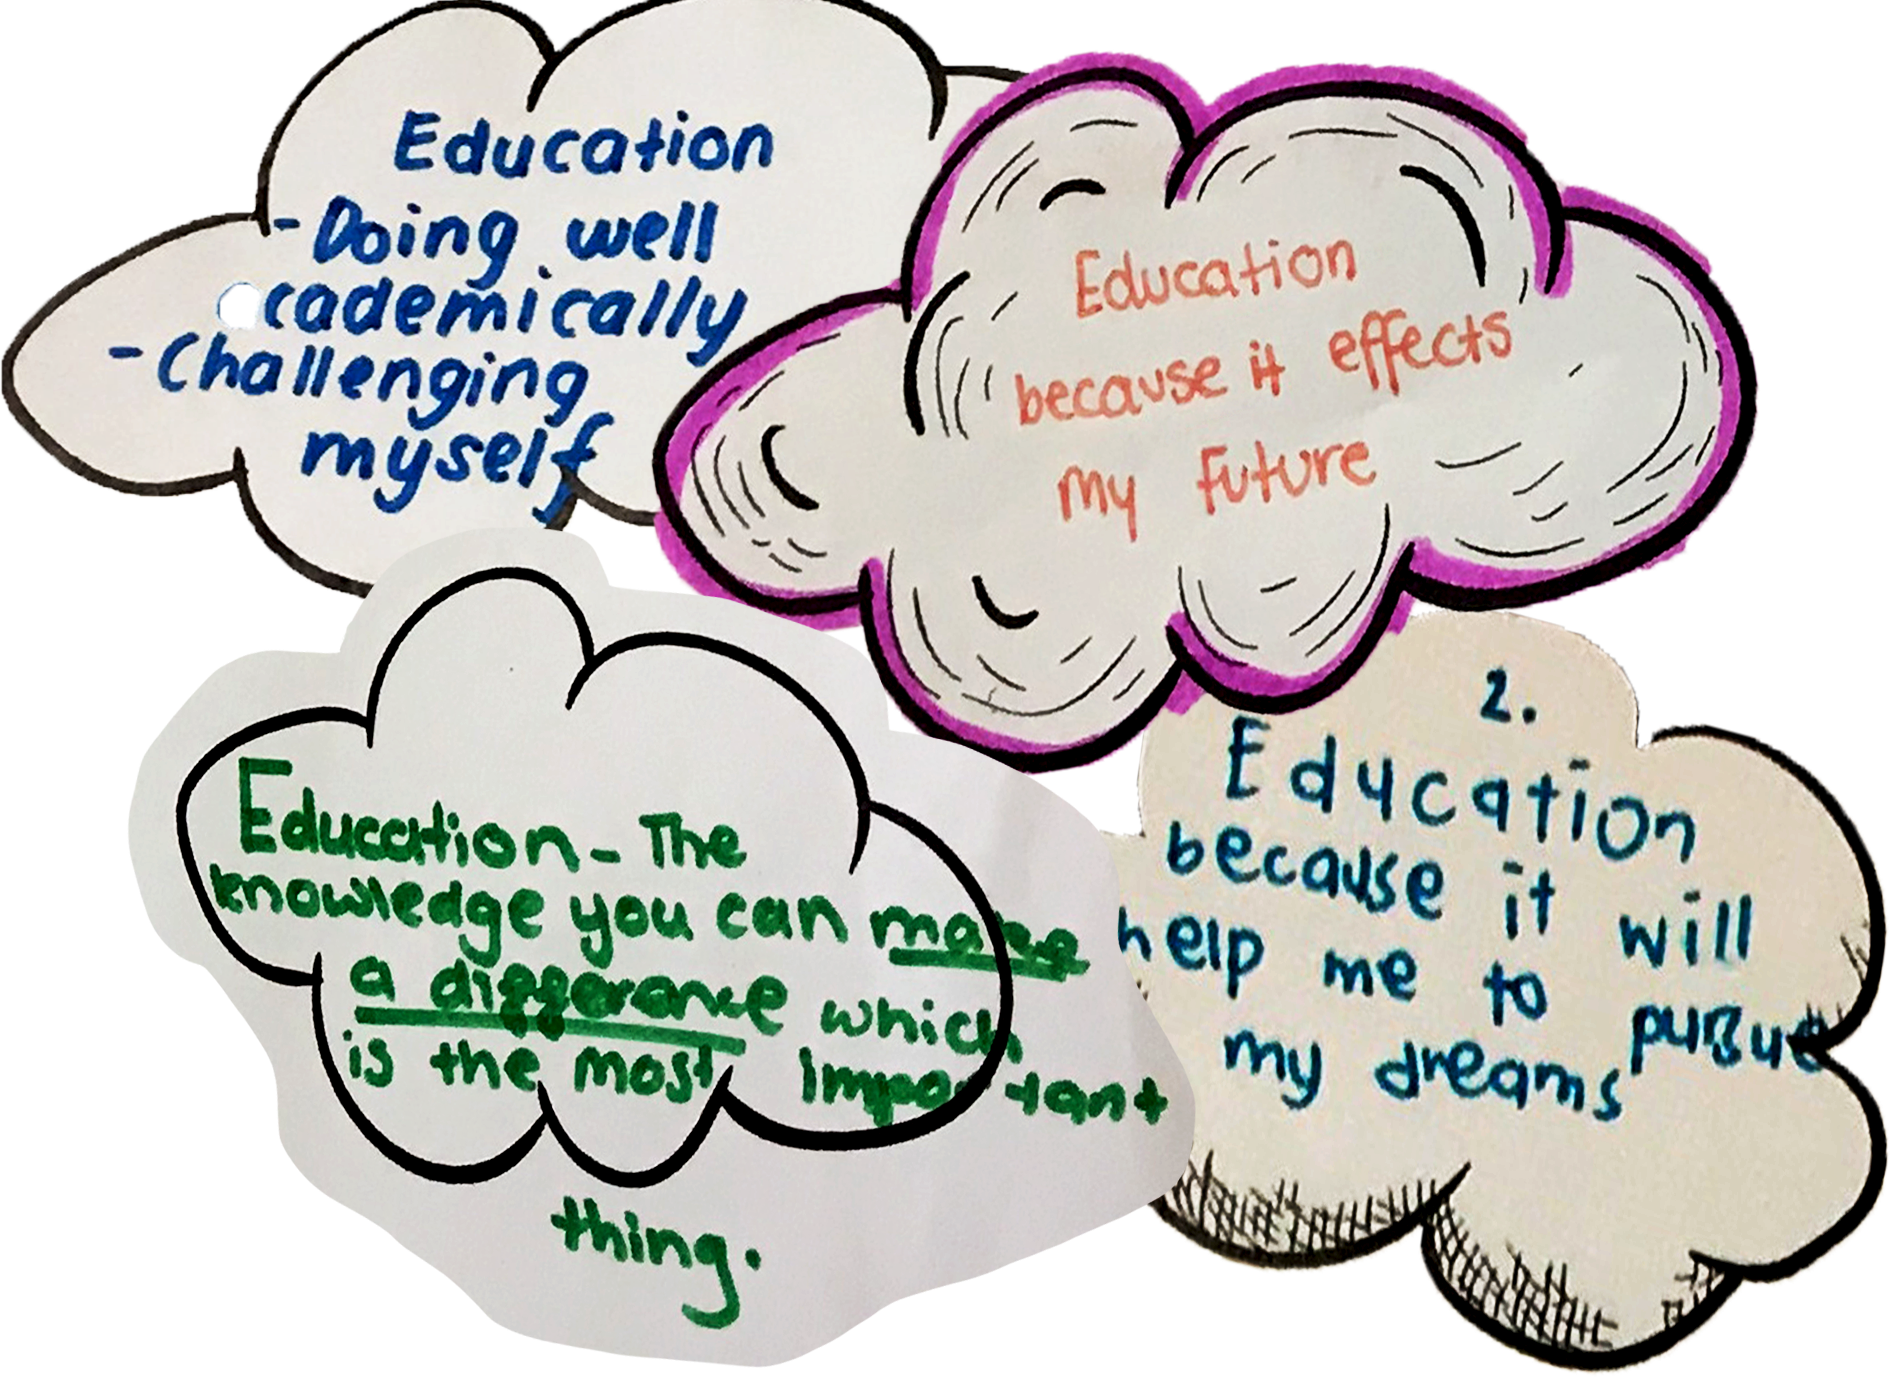 Education
- Doing well
cademically
- Challenging
myself
Education
because it effects
my future
Education - The
knowledge you can make
a diggerance which
is the most important
thing.
2.
Education
because it will
help me to pursue
my dreams